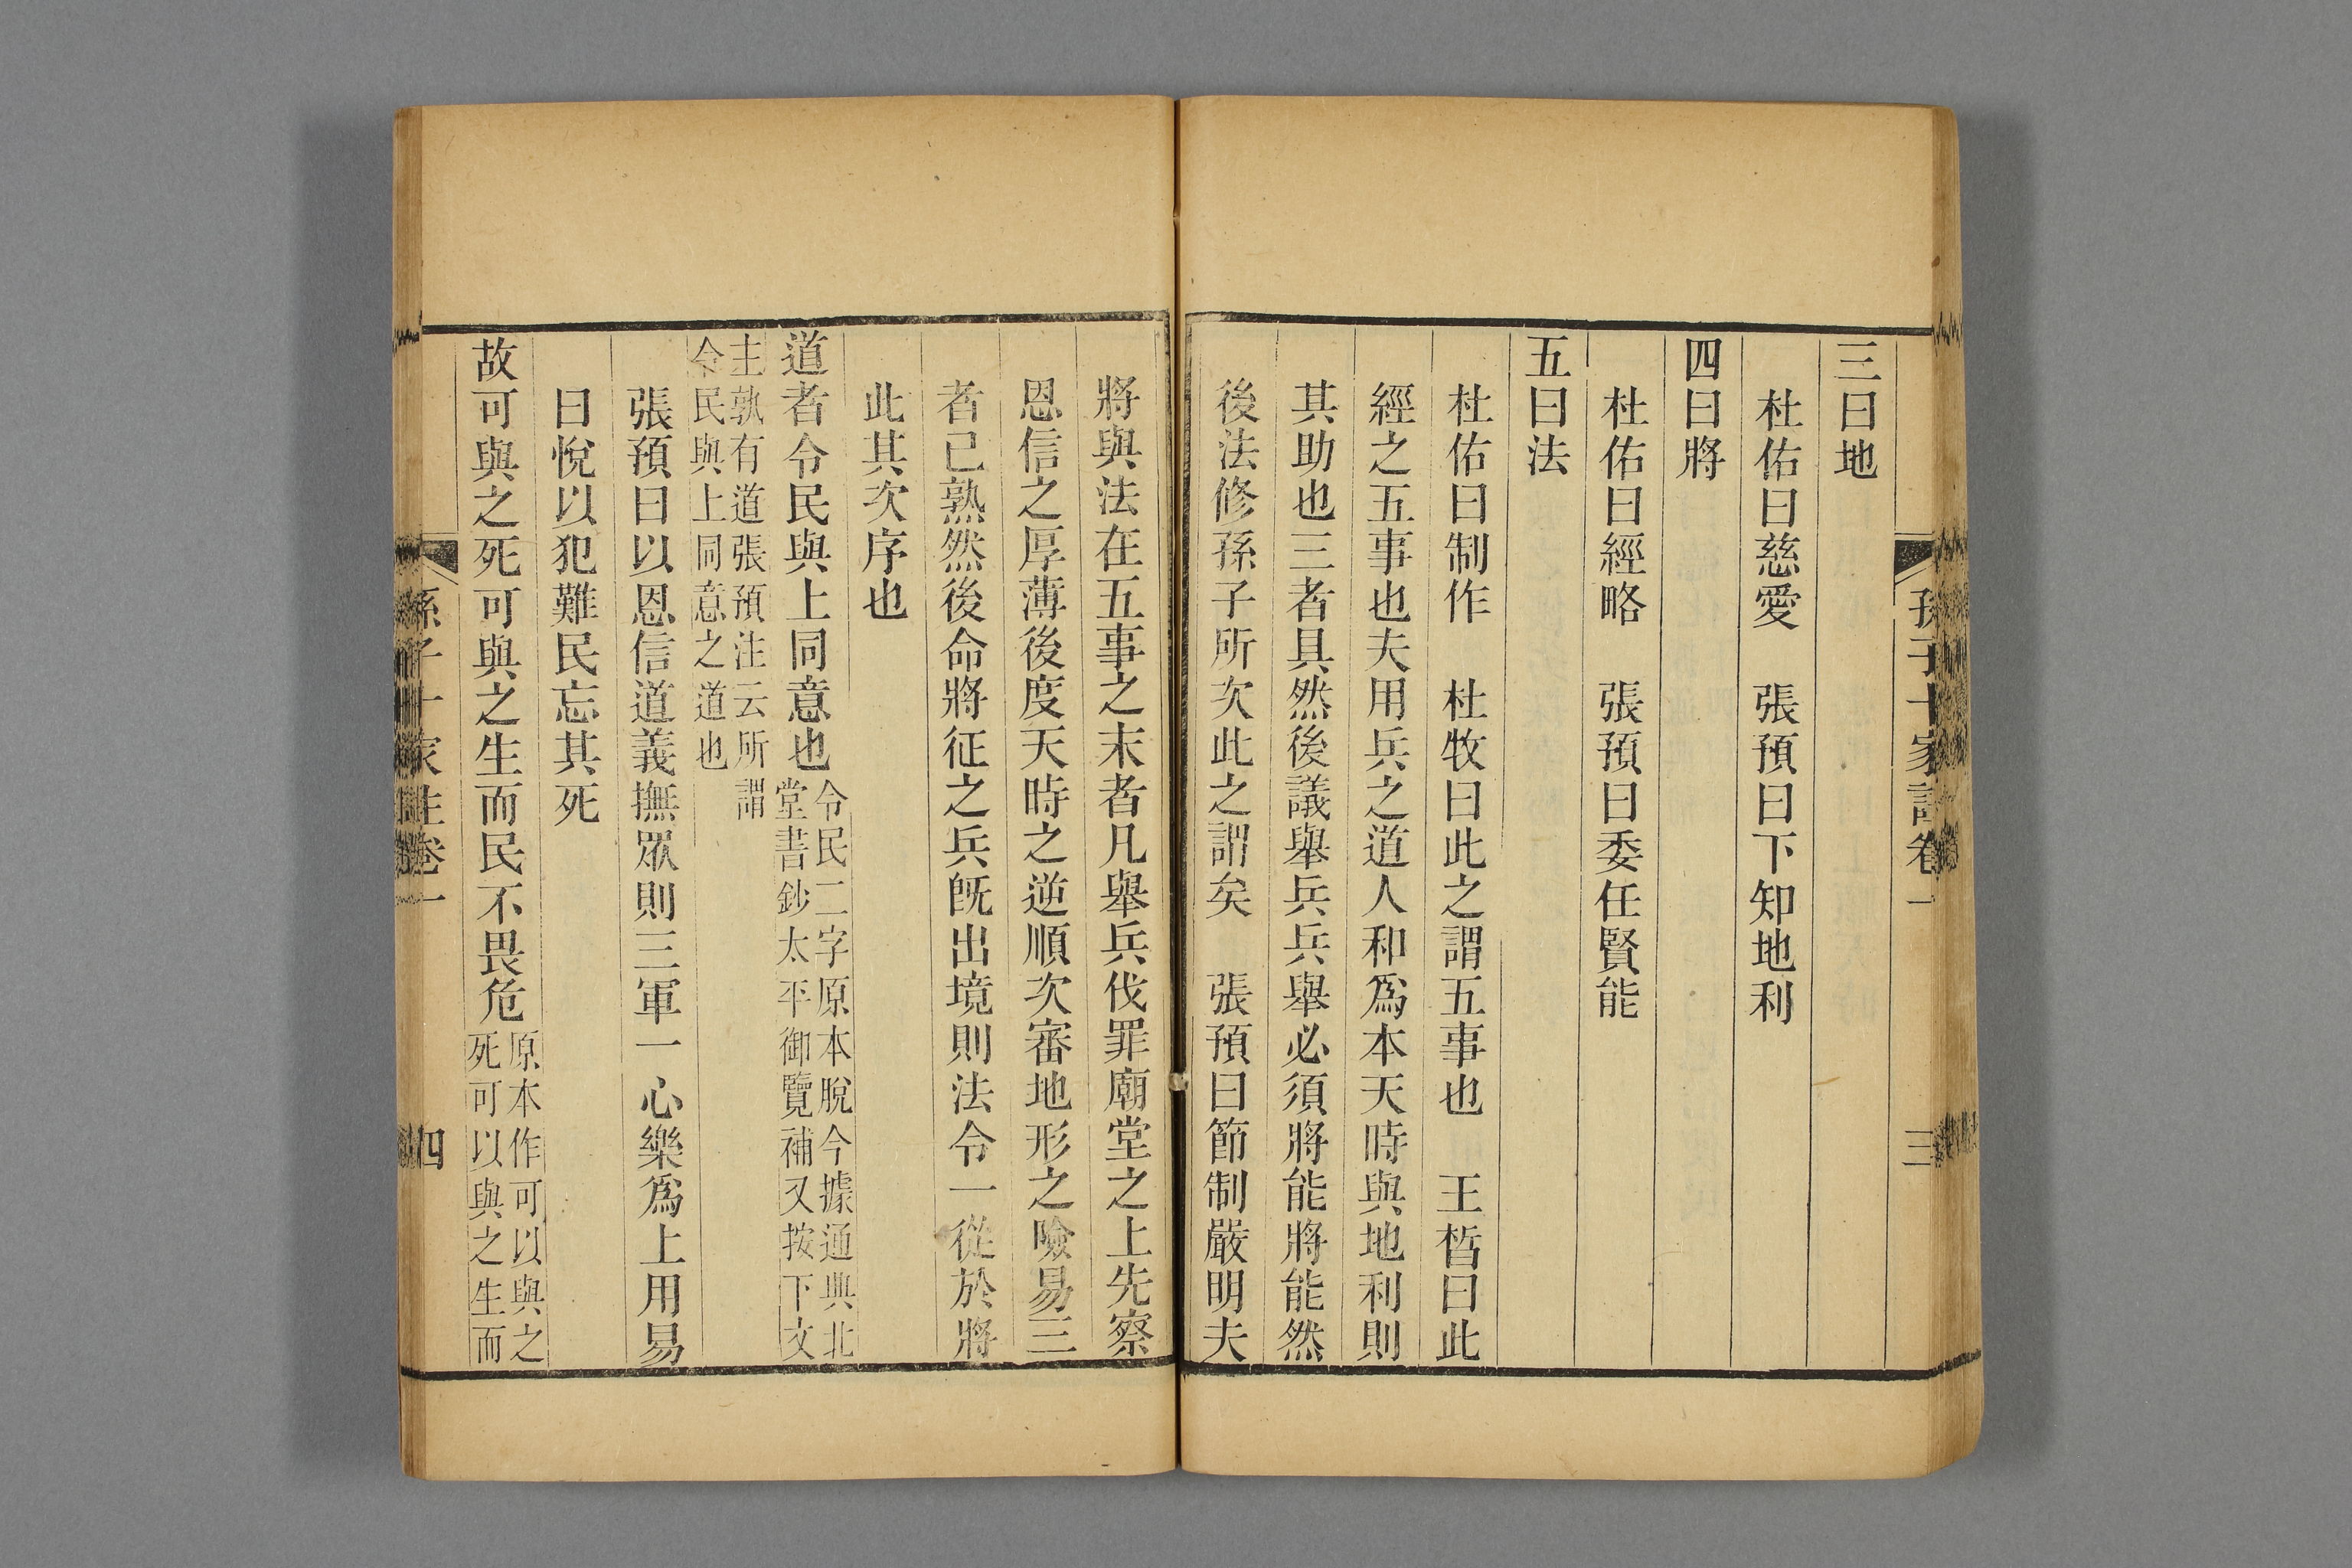 孫子十家註卷一 三
三曰地
杜佑曰慈愛 張預曰下知地利
四曰將
杜佑曰經略 張預曰委任賢能
五曰法
杜佑曰制作 杜牧曰此之謂五事也 王晳曰此
經之五事也夫用兵之道人和爲本天時與地利則
其助也三者具然後議舉兵兵舉必須將能將能然
後法修孫子所次此之謂矣 張預曰節制嚴明夫
將與法在五事之末者凡舉兵伐罪廟堂之上先察
恩信之厚薄後度天時之逆順次審地形之險易三
者已熟然後命將征之兵旣出境則法令一從於將
此其次序也
道者令民與上同意也
令民二字原本脫今據通典北
堂書鈔太平御覽補又按下文
主孰有道張預注云所謂
令民與上同意之道也
張預曰以恩信道義撫眾則三軍一心樂爲上用易
曰悅以犯難民忘其死
故可與之死可與之生而民不畏危
原本作可以與之
死可以與之生而
孫子十家註卷一 四